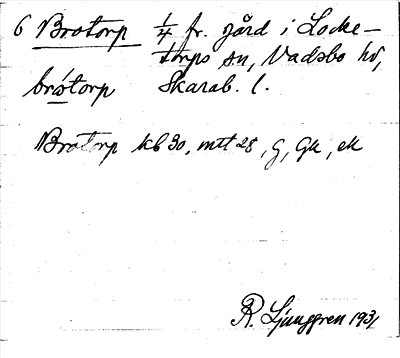 6 Brotorp 1/4 fr. gård i Locke-
torps sn, Vadsbo hd,
brótorp Skarab. l.
Brotorp kb 30, mtt 28, G, GK, ek
R. Ljunggren 1931